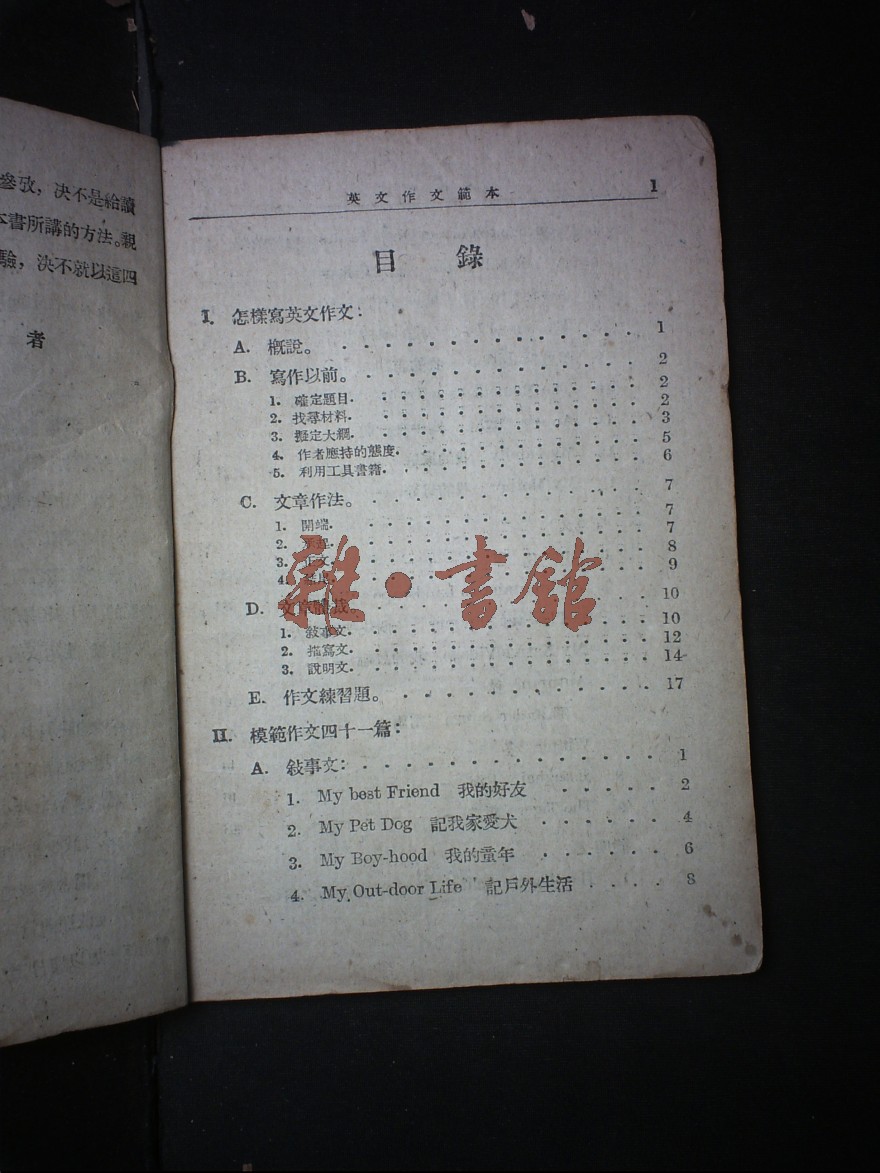 參攷，決不是給讀
本書所講的方法。親
驗，決不就以這四
者
英文作文範本 1
目錄
I. 怎樣寫英文作文：
A. 概說。 1
B. 寫作以前。 2
1. 確定題目. 2
2. 找尋材料. 2
3. 擬定大綱. 3
4. 作者應持的態度. 5
5. 利用工具書籍. 6
C. 文章作法。 7
1. 開端. 7
2. 7
3. 正文. 8
4. 9
D. 文章體裁。 10
1. 敍事文. 10
2. 描寫文. 12
3. 說明文. 14
E. 作文練習題。 17
II. 模範作文四十一篇：
A. 敍事文： 1
1. My best Friend 我的好友 2
2. My Pet Dog 記我家愛犬 4
3. My Boy-hood 我的童年 6
4. My Out-door Life 記戶外生活 8
雜·書館